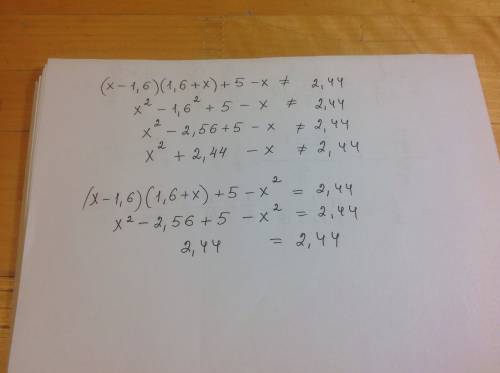 (x-1,6)(1,6+x)+5-x ≠ 2,44
x² - 1,6² + 5 - x ≠ 2,44
x² - 2,56+5 - x ≠ 2,44
x² + 2,44 - x ≠ 2,44
(x-1,6)(1,6+x)+5-x² = 2,44
x² - 2,56+5 - x² = 2,44
2,44 = 2,44